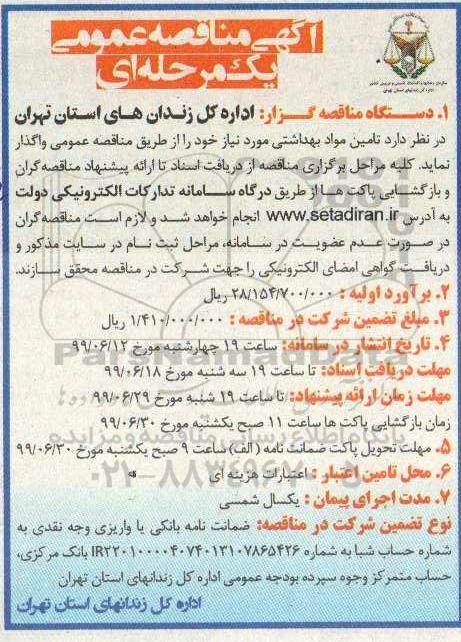 آگهی مناقصه عمومی
یک مرحله‌ای
۱. دستگاه مناقصه گزار: اداره کل زندان های استان تهران
در نظر دارد تامین مواد بهداشتی مورد نیاز خود را از طریق مناقصه عمومی واگذار
نماید. کلیه مراحل برگزاری مناقصه از دریافت اسناد تا ارائه پیشنهاد مناقصه‌گران
و بازگشایی پاکت ها از طریق درگاه سامانه تدارکات الکترونیکی دولت
به آدرس www.setadiran.ir انجام خواهد شد و لازم است مناقصه‌گران
در صورت عدم عضویت در سامانه، مراحل ثبت نام در سایت مذکور و
دریافت گواهی امضای الکترونیکی را جهت شرکت در مناقصه محقق سازند.
۲. برآورد اولیه : ۲۸/۱۵۴/۷۰۰/۰۰۰ ریال
۳. مبلغ تضمین شرکت در مناقصه : ۱/۴۱۰/۰۰۰/۰۰۰ ریال
۴. تاریخ انتشار در سامانه: ساعت ۱۹ چهارشنبه مورخ ۹۹/۰۶/۱۲
مهلت دریافت اسناد: تا ساعت ۱۹ سه شنبه مورخ ۹۹/۰۶/۱۸
مهلت زمان ارائه پیشنهاد: تا ساعت ۱۹ شنبه مورخ ۹۹/۰۶/۲۹
زمان بازگشایی پاکت ها ساعت ۱۱ صبح یکشنبه مورخ ۹۹/۰۶/۳۰
۵. مهلت تحویل پاکت ضمانت نامه (الف) ساعت ۹ صبح یکشنبه مورخ ۹۹/۰۶/۳۰
۶. محل تامین اعتبار : اعتبارات هزینه ای
۷. مدت اجرای پیمان : یکسال شمسی
نوع تضمین شرکت در مناقصه: ضمانت نامه بانکی یا واریزی وجه نقدی به
شماره حساب شبا به شماره IR۲۲۰۱۰۰۰۰۴۰۷۴۰۱۳۱۰۷۸۶۵۴۲۶ بانک مرکزی،
حساب متمرکز وجوه سپرده بودجه عمومی اداره کل زندانهای استان تهران
اداره کل زندانهای استان تهران